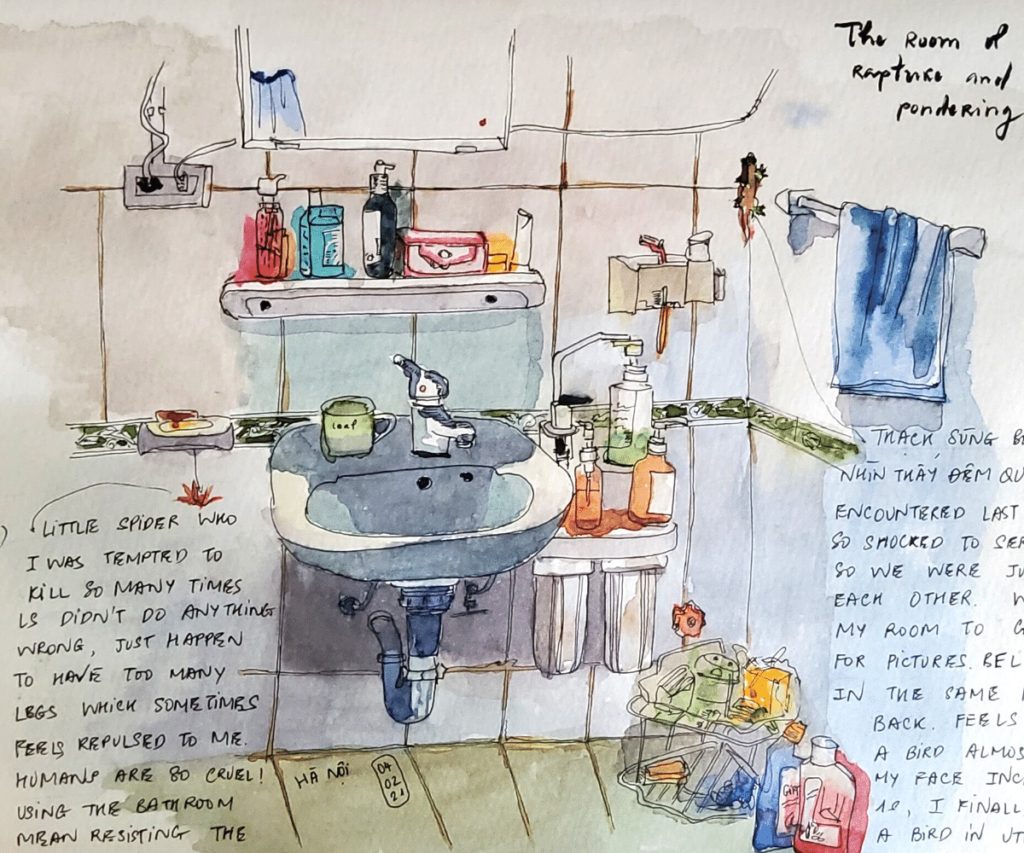 The Room of
rapture and
pondering
leaf
LITTLE SPIDER WHO
I WAS TEMPTED TO
KILL SO MANY TIMES
IS DIDN'T DO ANYTHING
WRONG, JUST HAPPEN
TO HAVE TOO MANY
LEGS WHICH SOMETIMES
FEELS REPULSED TO ME.
HUMANS ARE SO CRUEL!
USING THE BATHROOM
MEAN RESISTING THE
HÀ NỘI
04
02
21
THẠCH SÙNG BÉ
NHÌN THẤY ĐÊM QU
ENCOUNTERED LAST
SO SHOCKED TO SEE
SO WE WERE JU
EACH OTHER. W
MY ROOM TO G
FOR PICTURES. BEL
IN THE SAME
BACK. FEELS
A BIRD ALMOS
MY FACE INC
I FINALL
A BIRD IN UT